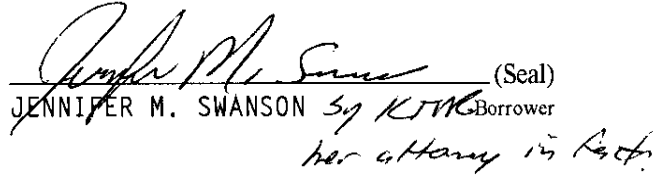 Jennifer M. Swanson (Seal)
JENNIFER M. SWANSON by KMR Borrower
her attorney in fact.